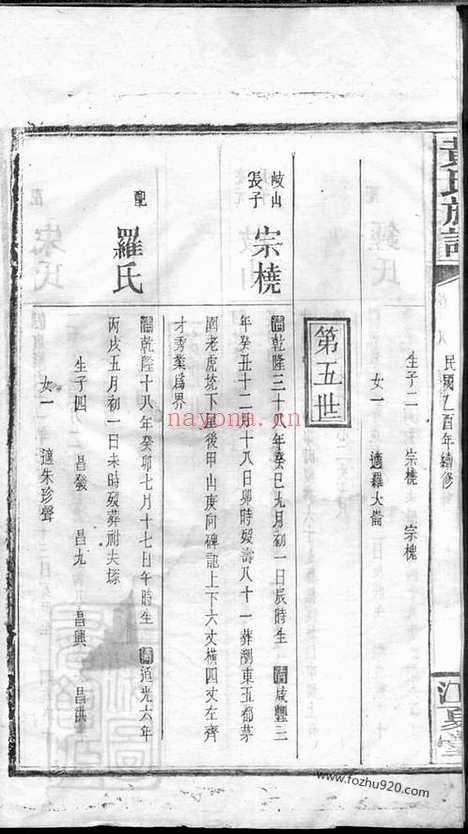 黃氏族譜
民國乙酉年續修
江夏堂
生子二　宗橈　宗槐
女一　適羅大崙
第五世
岐山長子　宗橈
清乾隆三十八年癸巳九月初一日辰時生　清咸豐三
年癸丑十二月十八日卯時歿壽八十一葬瀏東五都茅
園老虎垅下屋後甲山庚向碑記上下六丈橫四丈左齊
才秀業為界
配　羅氏
清乾隆十八年癸卯七月十七日午時生　清道光六年
丙戌五月初一日未時歿葬祔夫塚
生子四　昌發　昌九　昌興　昌洪
女一　適朱珍聲
nayona.cn
www.fozhu920.com